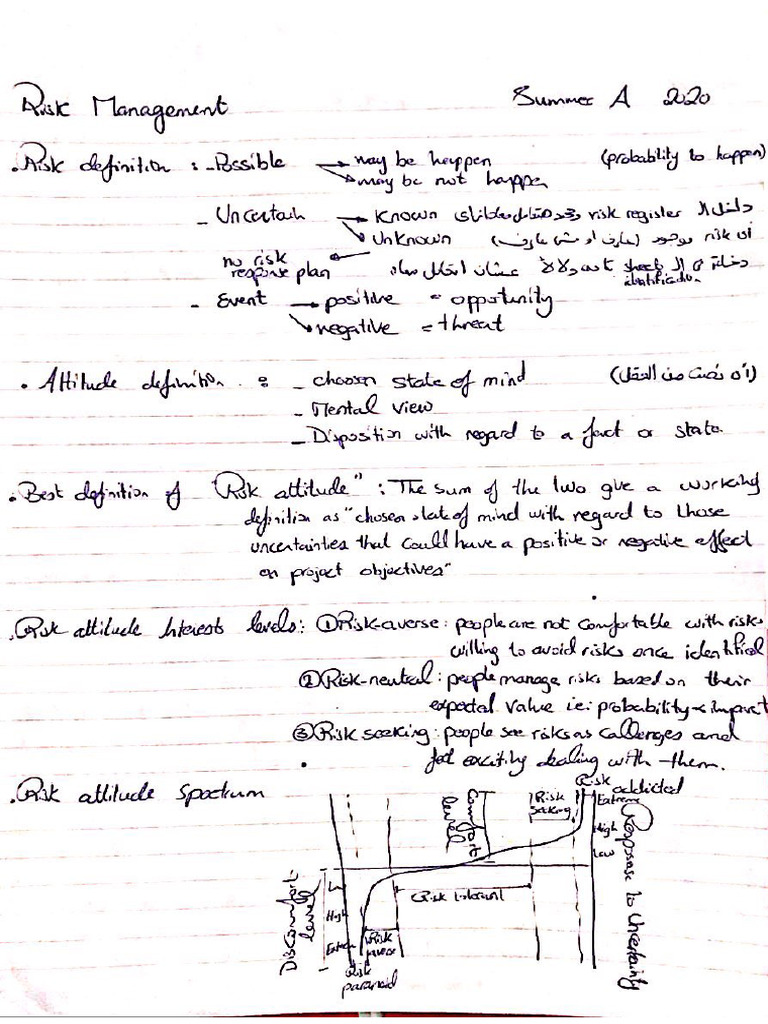 Risk Management Summer A 2020
. Risk definition : - Possible → may be happen (probability to happen)
→ may be not happen
- Uncertain → Known risk register داخل ال
→ Unknown ان risk موجود (عارف او مش عارف)
no risk
response plan
identification
- Event → positive = opportunity
→ negative = threat
. Attitude definition : - choosen state of mind
- Mental view
- Disposition with regard to a fact or state
. Best definition of "Risk attitude" : The sum of the two give a working
definition as "chosen state of mind with regard to those
uncertainties that could have a positive or negative effect
on project objectives"
. Risk attitude Interests levels : ① Risk-averse : people are not comfortable with risks
willing to avoid risks once identified
② Risk-neutral : people manage risks based on their
expected value i.e: probability × impact
③ Risk seeking : people see risks as callenges and
feel exciting dealing with them.
. Risk attitude Spectrum
Risk addicted
Comfort level
Risk seeking
Extreme
High
Low
Response to Uncertainty
Discomfort level
Low
High
Extreme
Risk averse
Risk paranoid